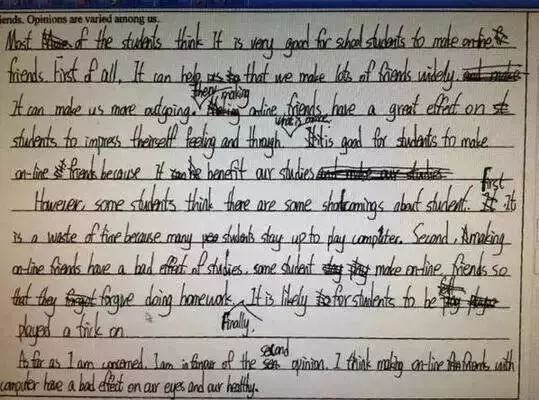 iends. Opinions are varied among us.
Most of the students think It is very good for school students to make on-line
friends. First of all, It can help us that we make lots of friends widely.
It can make us more outgoing. then, making online friends have a great effect on
students to impress theirself feeling and through. what is more, It is good for students to make
on-line friends because it can be benefit our studies
However, some students think there are some shortcomings about student. first It
is a waste of time because many students stay up to play computer. Second, making
on-line friends have a bad effect of studies. some student make on-line friends so
that they forgive doing homework. Finally. It is likely for students to be
played a trick on.
As far as I am concerned. I am in favour of the second opinion. I think making on-line friends with
computer have a bad effect on our eyes and our healthy.